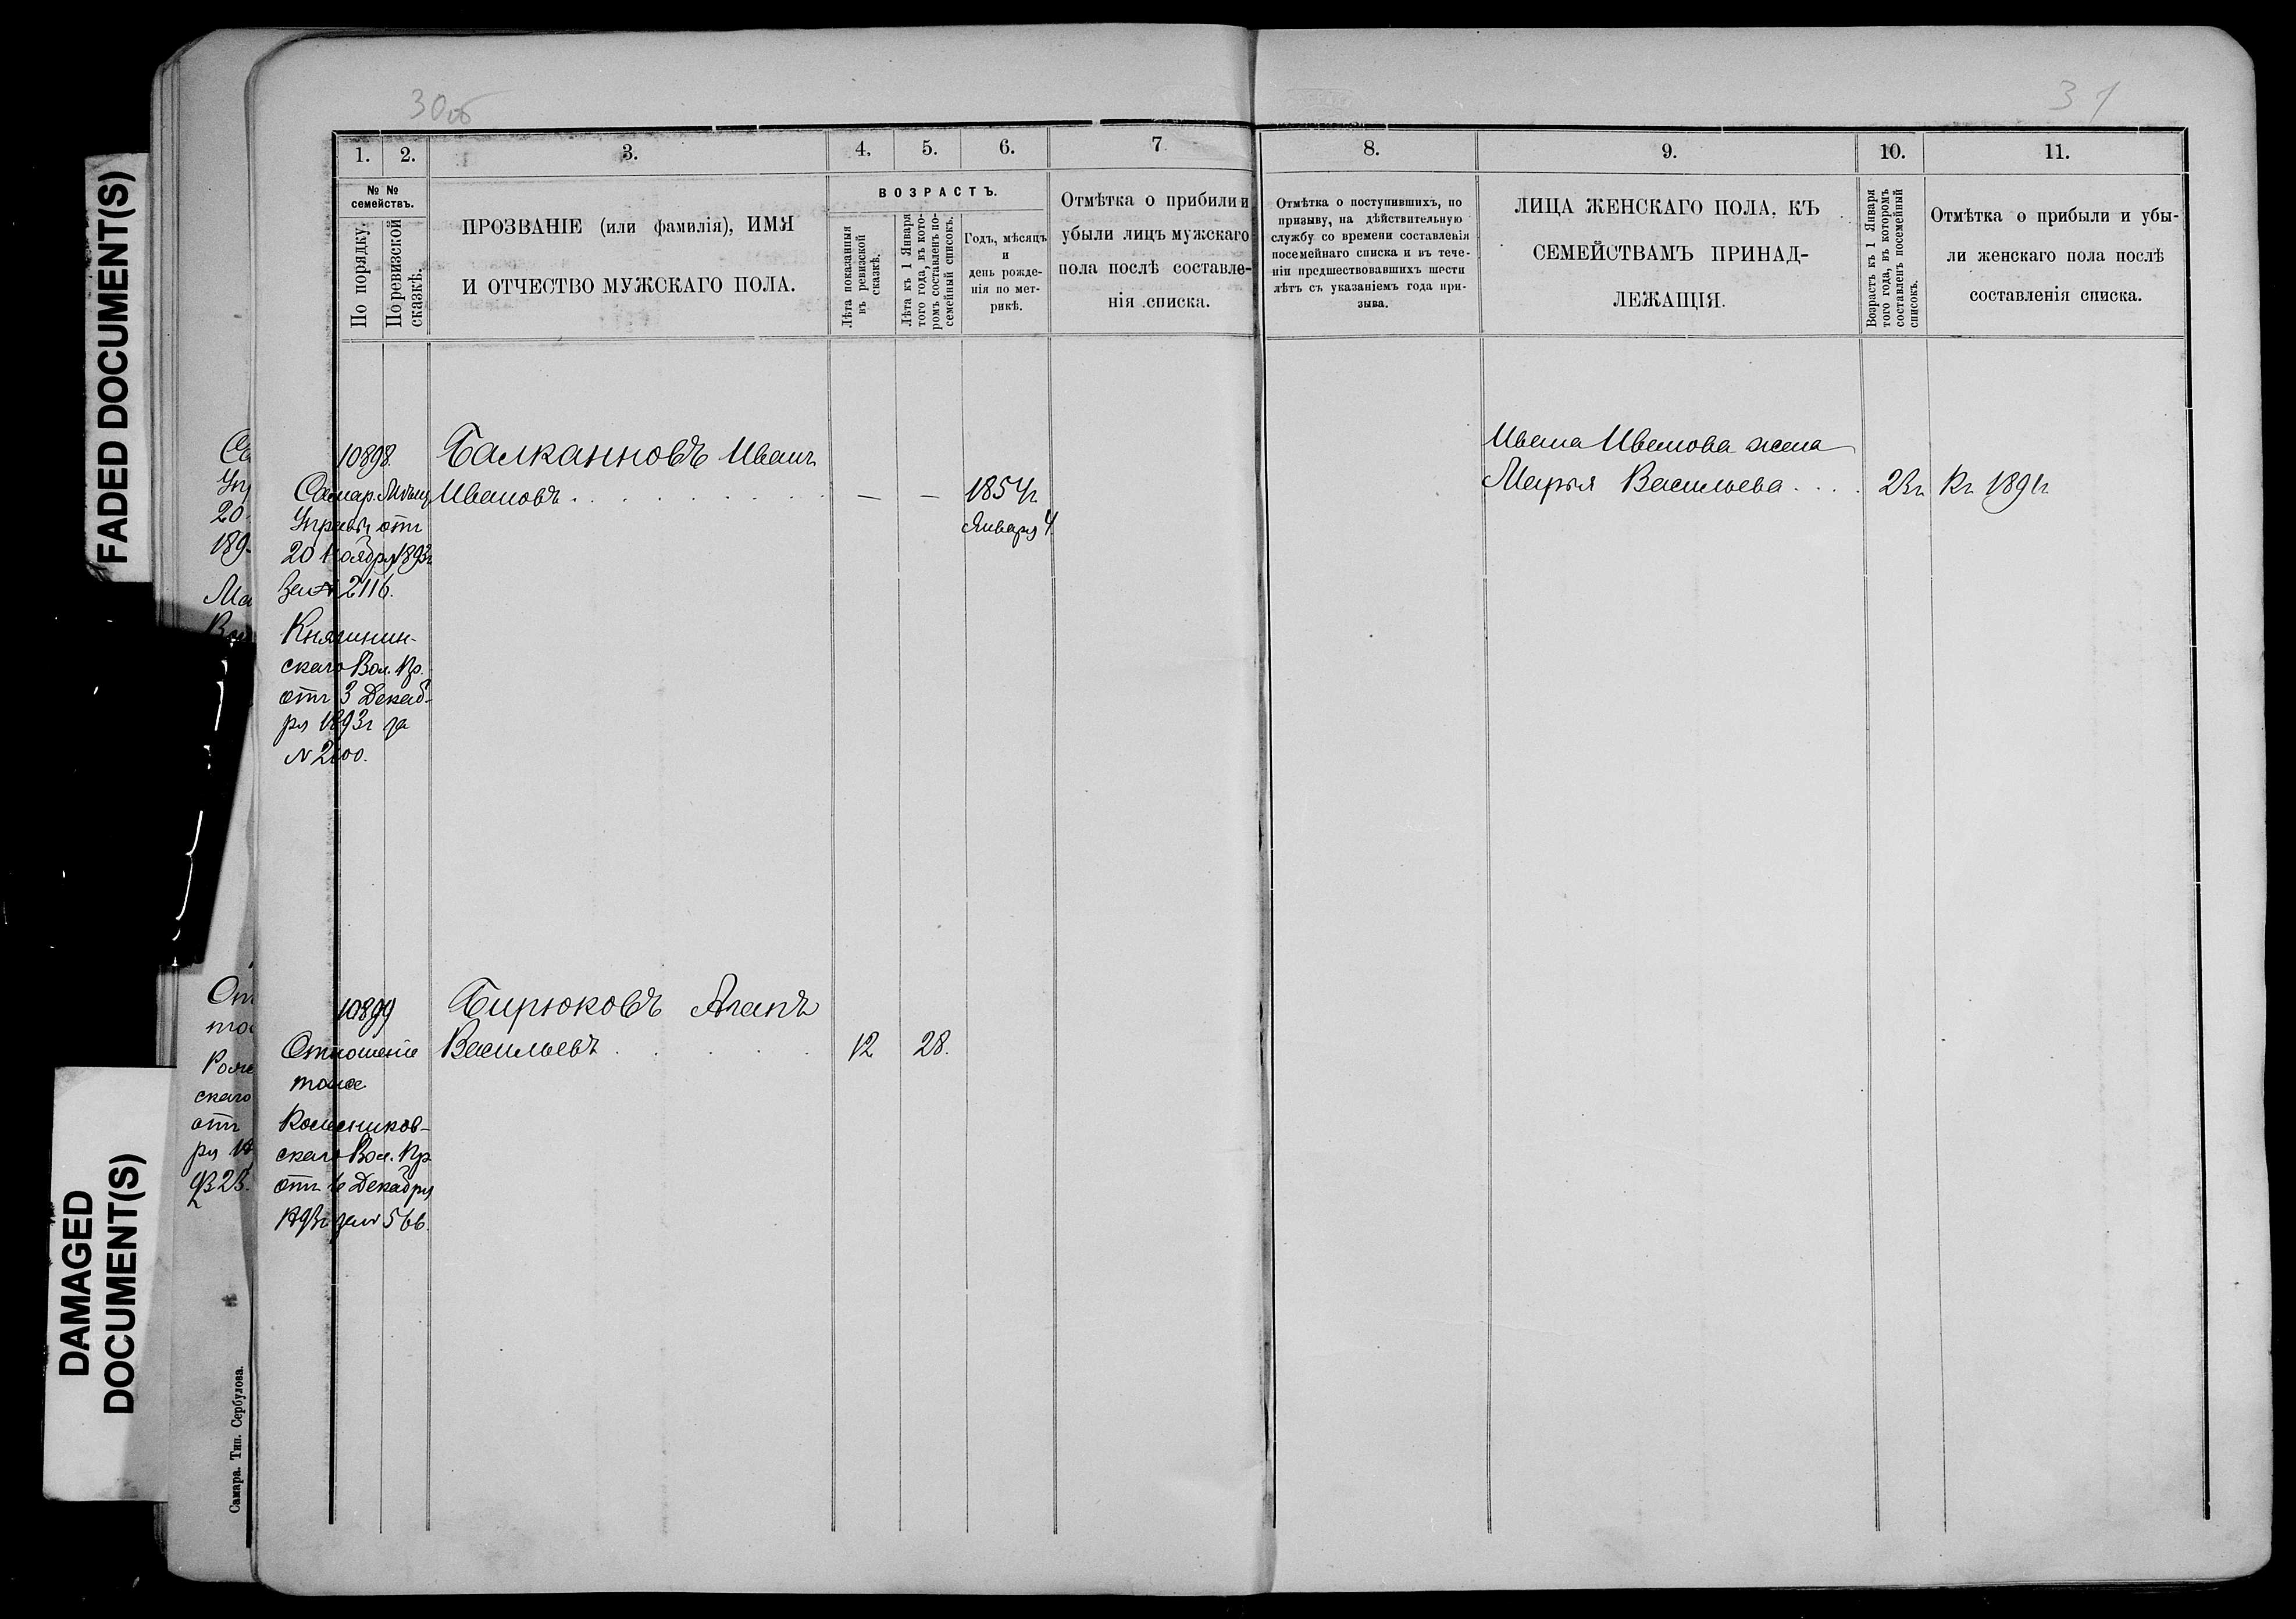 FADED DOCUMENT(S)
DAMAGED
DOCUMENT(S)
Самара. Тип. Сербулова.
30об
31
1.
2.
3.
4.
5.
6.
7
8.
9.
10.
11.
№ №
семействъ.
По порядку.
По ревизской
сказкѣ.
ПРОЗВАНІЕ (или фамилія), ИМЯ
И ОТЧЕСТВО МУЖСКАГО ПОЛА.
ВОЗРАСТЪ.
Лѣта показанныя
въ ревизской
сказкѣ.
Лѣта къ 1 Января
того года, въ кото-
ромъ составленъ по-
семейный списокъ.
Годъ, мѣсяцъ
и
день рожде-
нія по мет-
рикѣ.
Отмѣтка о прибыли и
убыли лицъ мужскаго
пола послѣ составле-
нія списка.
Отмѣтка о поступившихъ, по
призыву, на дѣйствительную
службу со времени составленія
посемейнаго списка и въ тече-
ніи предшествовавшихъ шести
лѣтъ съ указаніемъ года при-
зыва.
ЛИЦА ЖЕНСКАГО ПОЛА, КЪ
СЕМЕЙСТВАМЪ ПРИНАД-
ЛЕЖАЩІЯ.
Возрастъ къ 1 Января
того года, въ которомъ
составленъ посемейный
списокъ.
Отмѣтка о прибыли и убы-
ли женскаго пола послѣ
составленія списка.
10898.
Самар. Мѣщ.
Управы отъ
20 Ноября 1893г
за № 2116.
Княгинин-
скаго Вол. Пр.
отъ 3 Декаб-
ря 1893г за
№
Балканновъ Иванъ
Ивановъ . . . . . . . . — — 1854г
Января 4
Ивана Иванова жена
Марья Васильева . . . . 23г Къ
10899
Отношеніе
тоже
Колесников-
скаго Вол. Пр
отъ Декабря
1893г за № 566.
Бирюковъ Агапъ
Васильевъ . . . . . 12 28.